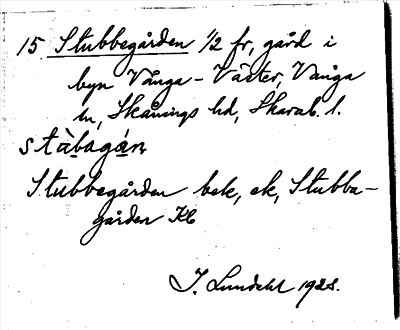 15. Stubbegården 1/2 fr, gård i
byn Vånga-Väster, Vånga
sn, Skånings hd, Skarab. l.
stàbagán
Stubbegården bek, ek, Stubba-
gården Kb
J. Lundahl 1928.